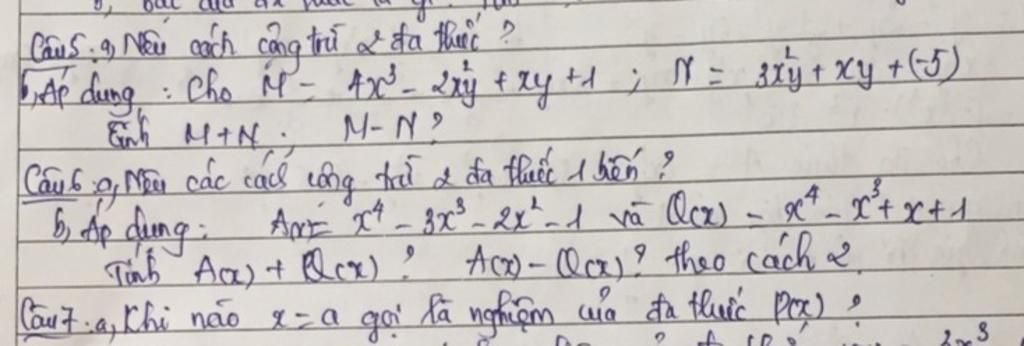 Câu5: a, Nêu cách cộng trừ 2 đa thức?
b, Áp dụng: Cho M = 4x³ - 2x²y + xy + 1 ; N = 3x²y + xy + (-5)
Tính M+N; M-N?
Câu6: a, Nêu các cách cộng trừ 2 đa thức 1 biến?
b, Áp dụng: A(x) = x⁴ - 3x³ - 2x² - 1 và Q(x) = x⁴ - x³ + x + 1
Tính A(x) + Q(x)? A(x) - Q(x)? theo cách 2.
Câu7: a, Khi nào x = a gọi là nghiệm của đa thức P(x)?